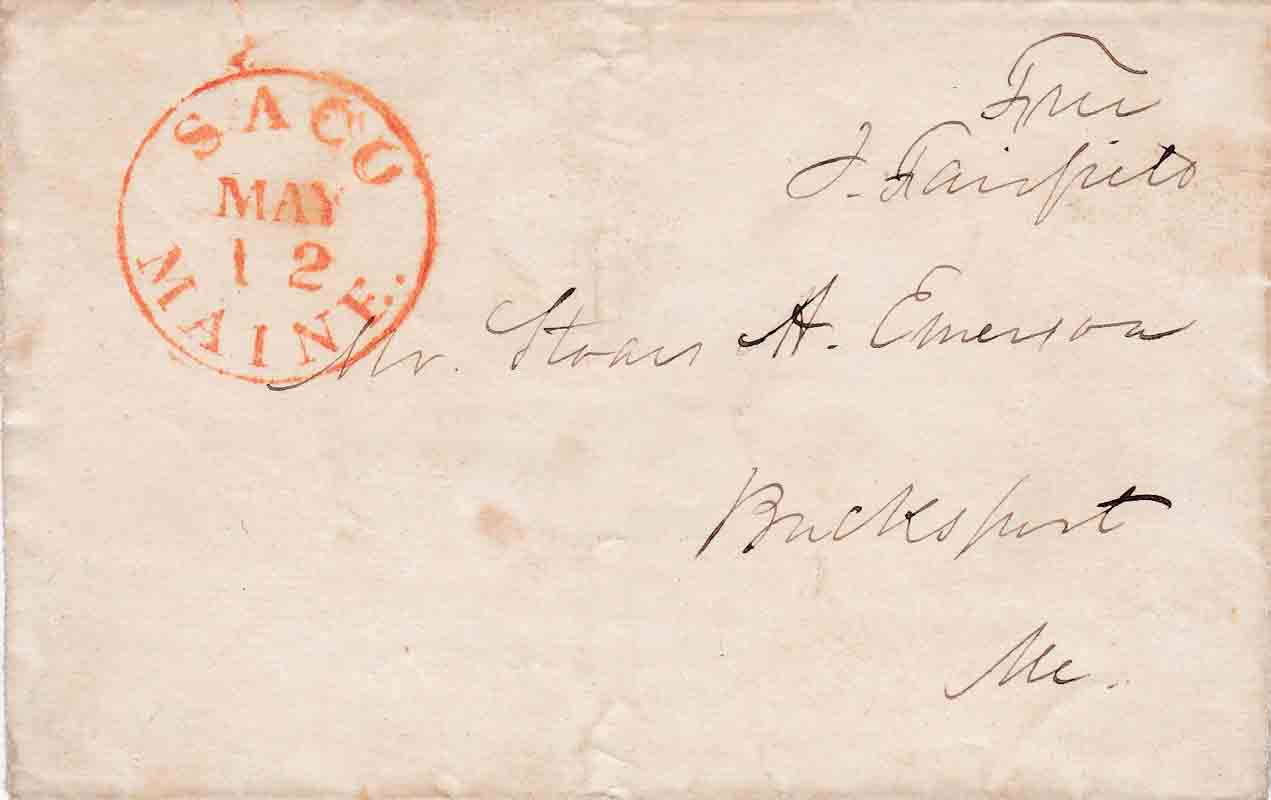 SACO
MAY
12
MAINE.
Free
J. Fairfield
Mr. H. Emerson
Bucksport
Me.